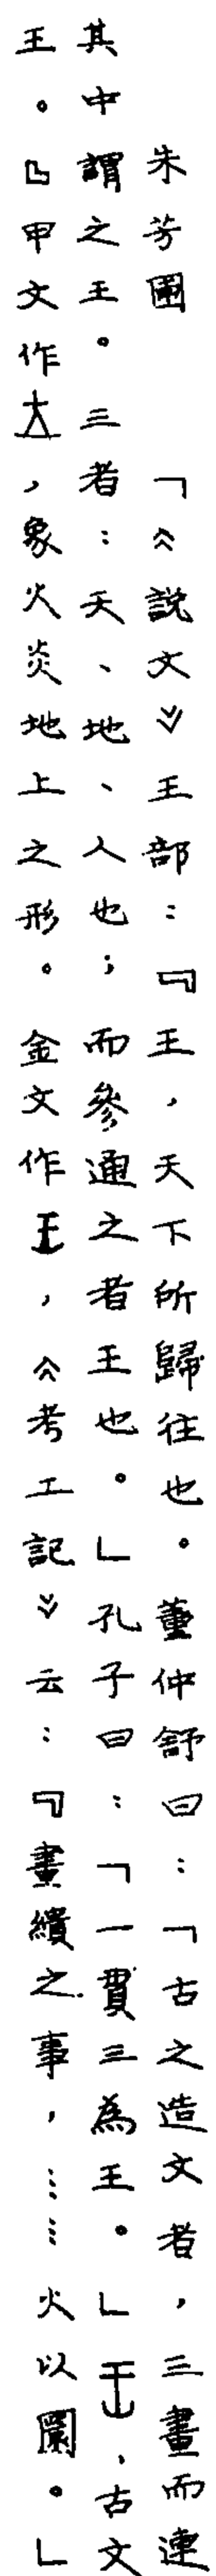 朱芳圃　「《說文》王部：『王，天下所歸往也。董仲舒曰：「古之造文者，三畫而連
其中謂之王。三者：天、地、人也；而參通之者王也。」孔子曰：「一貫三為王。」、古文
王。』甲文作，象火炎地上之形。金文作王，《考工記》云：『畫繢之事，……火以圜。」